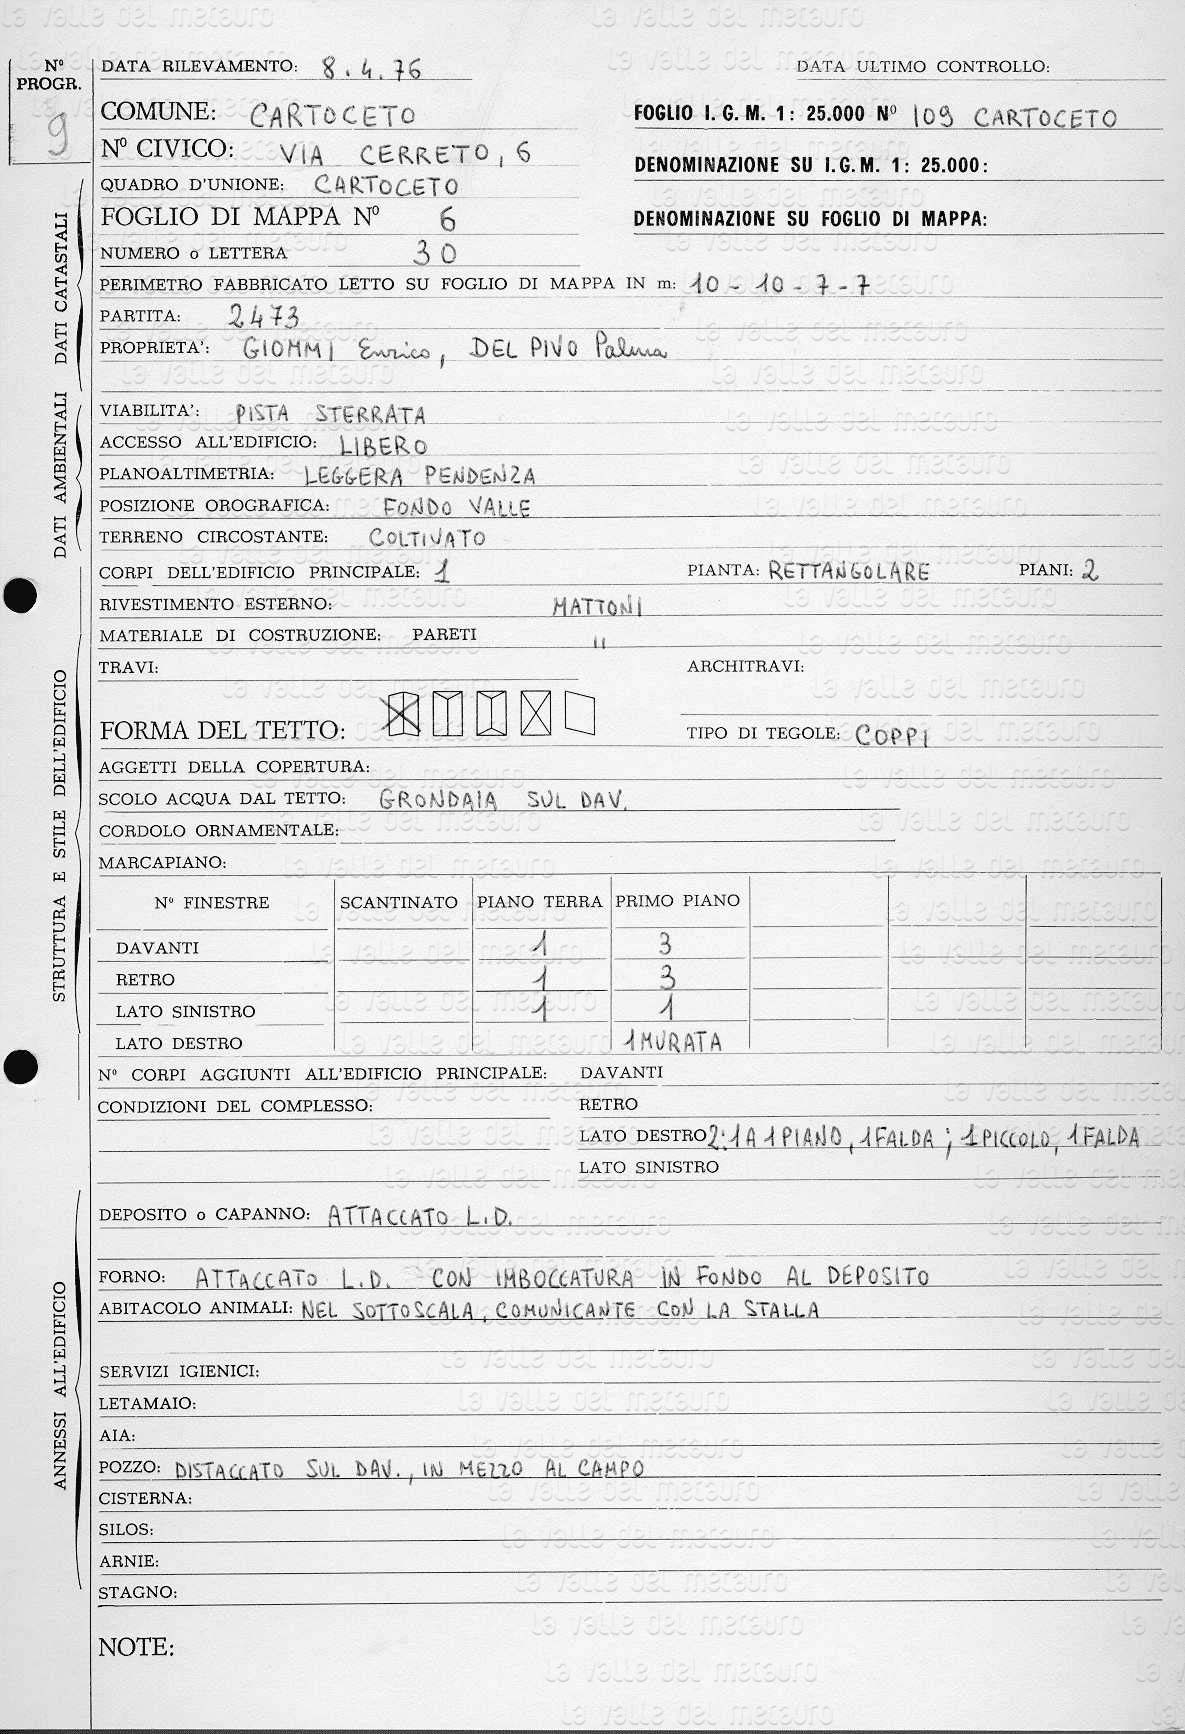 Nº PROGR. 9
DATA RILEVAMENTO: 8.4.76 DATA ULTIMO CONTROLLO:
COMUNE: CARTOCETO FOGLIO I.G.M. 1: 25.000 Nº 109 CARTOCETO
Nº CIVICO: VIA CERRETO, 6 DENOMINAZIONE SU I.G.M. 1: 25.000:
DATI CATASTALI
QUADRO D'UNIONE: CARTOCETO
FOGLIO DI MAPPA Nº 6 DENOMINAZIONE SU FOGLIO DI MAPPA:
NUMERO o LETTERA 30
PERIMETRO FABBRICATO LETTO SU FOGLIO DI MAPPA IN m: 10 - 10 - 7 - 7
PARTITA: 2473
PROPRIETA': GIOMMI Enrico, DEL PIVO Palma
DATI AMBIENTALI
VIABILITA': PISTA STERRATA
ACCESSO ALL'EDIFICIO: LIBERO
PLANOALTIMETRIA: LEGGERA PENDENZA
POSIZIONE OROGRAFICA: FONDO VALLE
TERRENO CIRCOSTANTE: COLTIVATO
STRUTTURA E STILE DELL'EDIFICIO
CORPI DELL'EDIFICIO PRINCIPALE: 1 PIANTA: RETTANGOLARE PIANI: 2
RIVESTIMENTO ESTERNO: MATTONI
MATERIALE DI COSTRUZIONE: PARETI "
TRAVI: ARCHITRAVI:
FORMA DEL TETTO: TIPO DI TEGOLE: COPPI
AGGETTI DELLA COPERTURA:
SCOLO ACQUA DAL TETTO: GRONDAIA SUL DAV.
CORDOLO ORNAMENTALE:
MARCAPIANO:
Nº FINESTRE SCANTINATO PIANO TERRA PRIMO PIANO
DAVANTI 1 3
RETRO 1 3
LATO SINISTRO 1 1
LATO DESTRO 1 MURATA
Nº CORPI AGGIUNTI ALL'EDIFICIO PRINCIPALE: DAVANTI
CONDIZIONI DEL COMPLESSO: RETRO
LATO DESTRO 2: 1 A 1 PIANO, 1 FALDA ; 1 PICCOLO, 1 FALDA
LATO SINISTRO
ANNESSI ALL'EDIFICIO
DEPOSITO o CAPANNO: ATTACCATO L.D.
FORNO: ATTACCATO L.D. CON IMBOCCATURA IN FONDO AL DEPOSITO
ABITACOLO ANIMALI: NEL SOTTOSCALA, COMUNICANTE CON LA STALLA
SERVIZI IGIENICI:
LETAMAIO:
AIA:
POZZO: DISTACCATO SUL DAV., IN MEZZO AL CAMPO
CISTERNA:
SILOS:
ARNIE:
STAGNO:
NOTE:
la valle del metauro